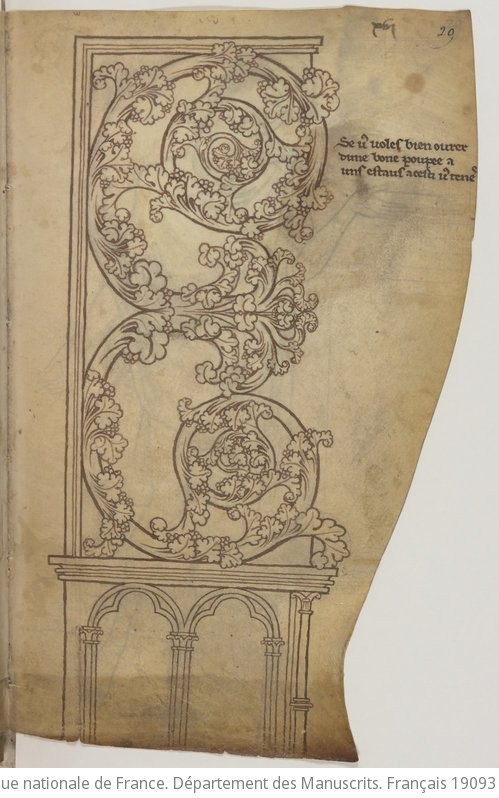 29
Se vͦ voles bien ovrer
dune bone poupee a
uns estaus a cesti vͦ tenes
ue nationale de France. Département des Manuscrits. Français 19093